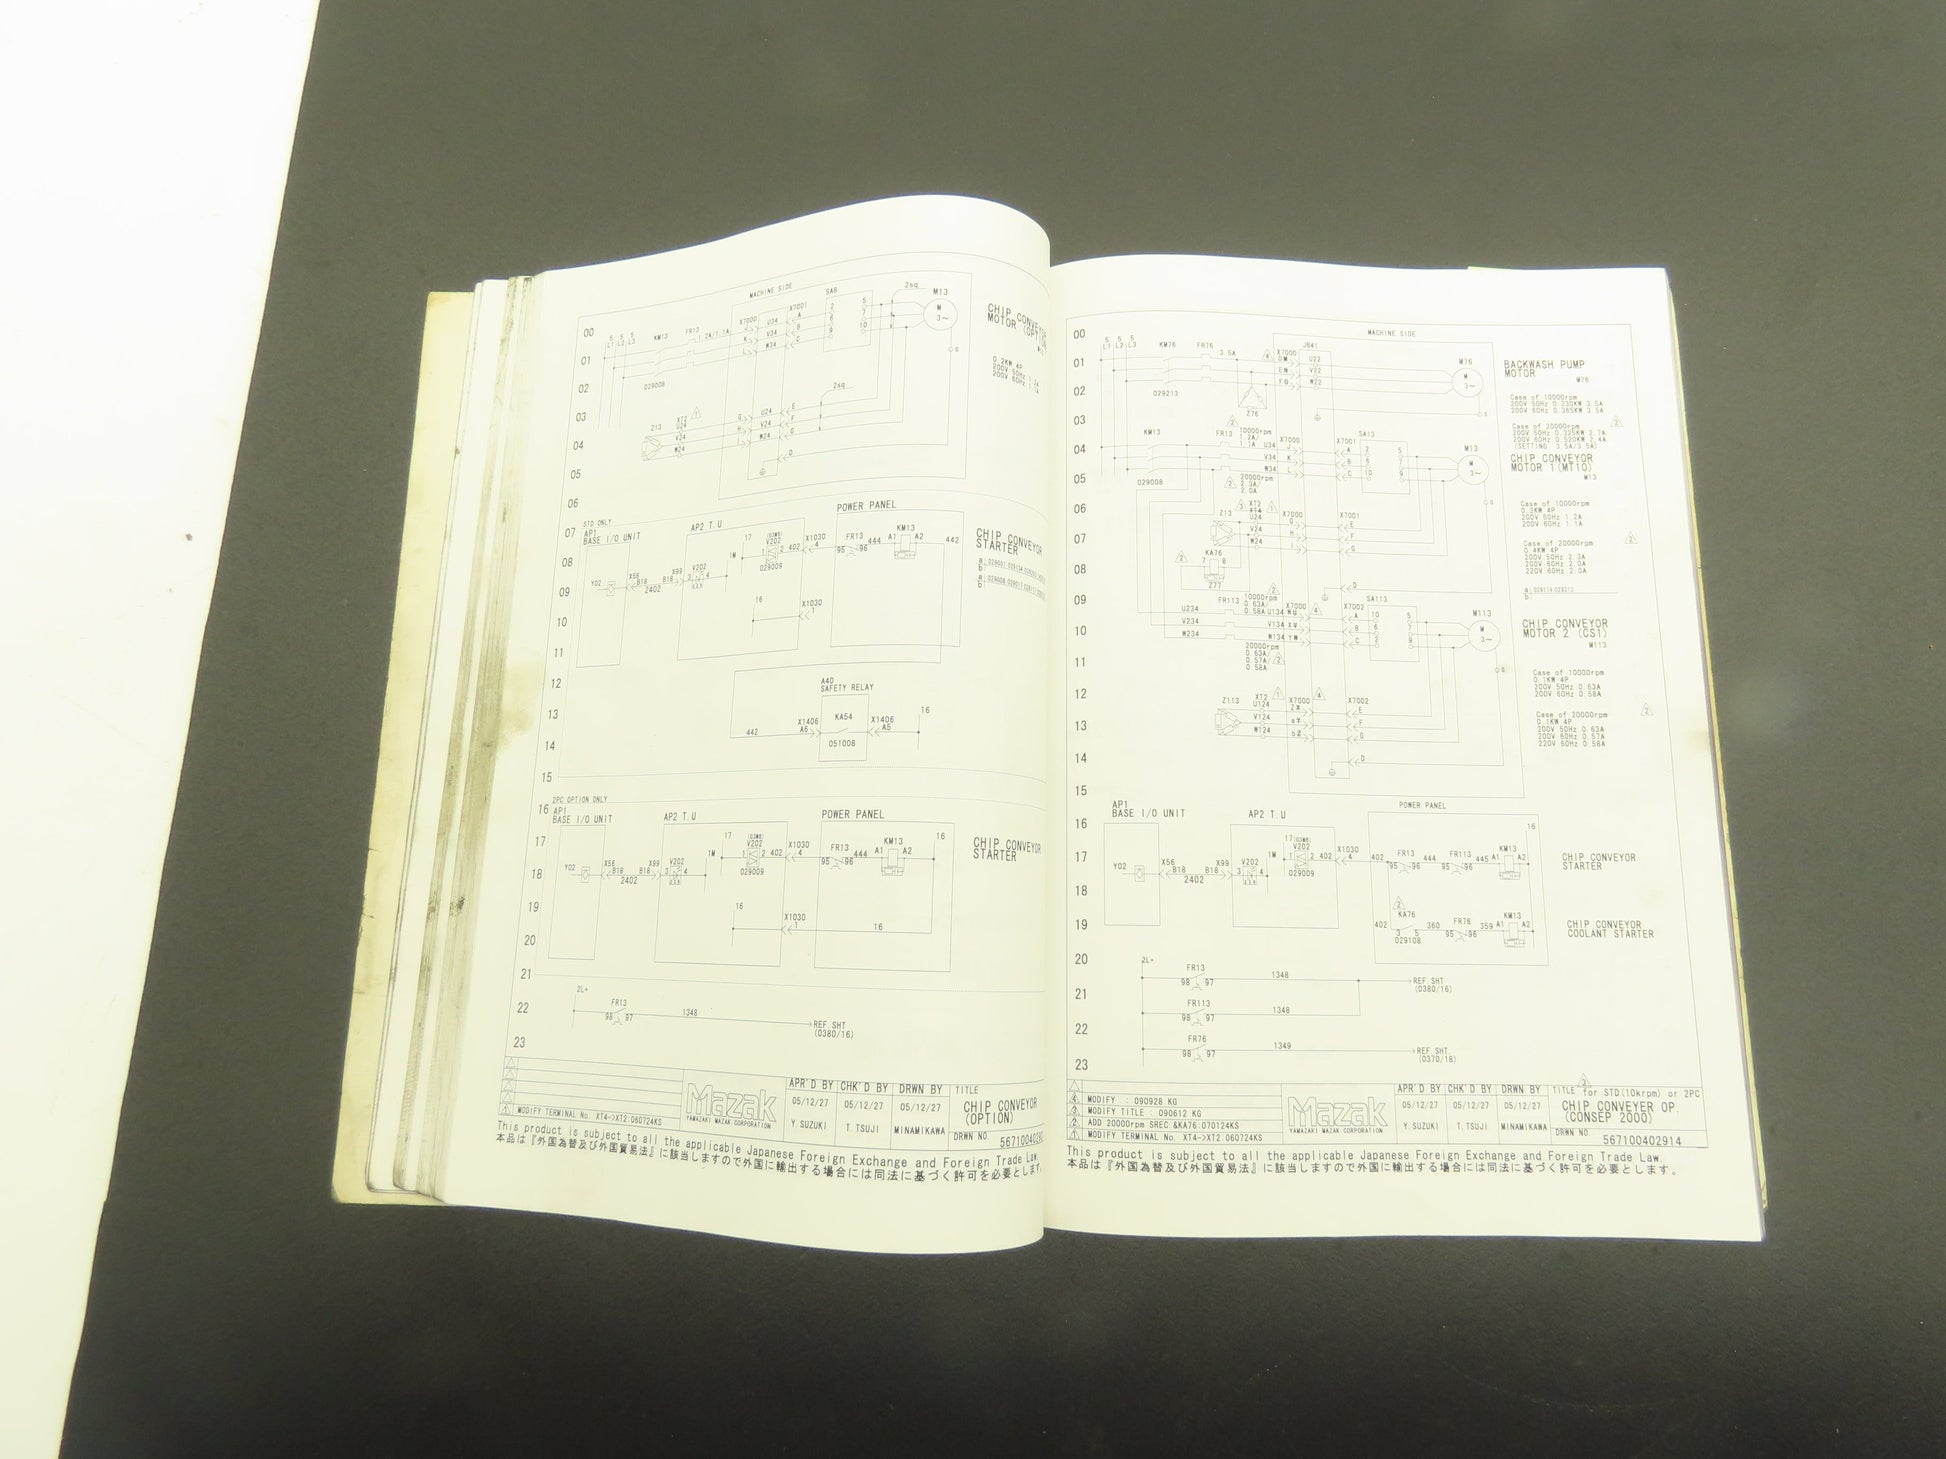 MACHINE SIDE
SA9
2sq
M13
CHIP CONVEYOR
MOTOR (OPTION)
0.2KW 4P
200V 50Hz 1.2A
200V 60Hz 1.1A
00
01
02
03
04
05
06
L1 L2 L3
KM13
FR13
1.2A/1.1A
X7000
X7001
U34
V34
W34
029008
2sq
Z13
XT2
U24
V24
W24
STD ONLY
07
08
09
10
11
12
13
14
15
AP1
BASE I/O UNIT
AP2 T.U
POWER PANEL
CHIP CONVEYOR
STARTER
Y02
X56
B18
2402
B18
X99
V202
3 4
17
(03W8)
V202
1M
1 2
402
X1030
4
029009
FR13
95 96
444
KM13
A1 A2
442
16
X1030
1
A40
SAFETY RELAY
KA54
051008
442
X1406
A6
X1406
A5
16
2PC OPTION ONLY
16
17
18
19
20
21
22
23
AP1
BASE I/O UNIT
AP2 T.U
POWER PANEL
CHIP CONVEYOR
STARTER
Y02
X56
B18
2402
B18
X99
V202
3 4
17
(03W8)
V202
1M
1 2
402
X1030
4
029009
FR13
95 96
444
KM13
A1 A2
16
16
X1030
1
16
2L+
FR13
98 97
1348
REF.SHT
(0380/16)
MODIFY TERMINAL No. XT4->XT2:060724KS
Mazak
YAMAZAKI MAZAK CORPORATION
APR'D BY CHK'D BY DRWN BY
05/12/27 05/12/27 05/12/27
Y.SUZUKI T.TSUJI MINAMIKAWA
TITLE
CHIP CONVEYOR
(OPTION)
DRWN NO.
This product is subject to all the applicable Japanese Foreign Exchange and Foreign Trade Law.
本品は『外国為替及び外国貿易法』に該当しますので外国に輸出する場合には同法に基づく許可を必要とします
00
01
02
03
04
05
06
07
08
09
10
11
12
13
14
15
MACHINE SIDE
L1 L2 L3
KM76
FR76
3.5A
X7000
JB41
U22
V22
W22
M76
029213
Z76
BACKWASH PUMP
MOTOR
M76
Case of 10000rpm
200V 50Hz 0.230KW 3.5A
200V 60Hz 0.365KW 3.5A
Case of 20000rpm
200V 50Hz 0.325KW 2.7A
200V 60Hz 0.520KW 2.4A
(SETTING 3.5A/3.5A)
KM13
FR13
10000rpm
1.2A/
1.1A
U34
V34
W34
X7000
X7001
SA13
M13
029008
20000rpm
2.3A/
2.0A
CHIP CONVEYOR
MOTOR 1(MT10)
M13
Case of 10000rpm
0.2KW 4P
200V 50Hz 1.2A
200V 60Hz 1.1A
Case of 20000rpm
0.4KW 4P
200V 50Hz 2.3A
200V 60Hz 2.0A
220V 60Hz 2.0A
XT2
XT4
U24
V24
W24
X7000
X7001
Z13
KA76
7 8
Z77
FR113
10000rpm
0.63A/
0.58A
U134
V134
W134
U234
V234
W234
X7000
X7002
SA113
M113
20000rpm
0.63A/
0.57A/
0.58A
CHIP CONVEYOR
MOTOR 2 (CS1)
M113
Case of 10000rpm
0.1KW 4P
200V 50Hz 0.63A
200V 60Hz 0.58A
Case of 20000rpm
0.1KW 4P
200V 50Hz 0.63A
200V 60Hz 0.57A
220V 60Hz 0.58A
Z113
XT2
U124
V124
W124
X7000
X7002
16
17
18
19
20
21
22
23
AP1
BASE I/O UNIT
AP2 T.U
POWER PANEL
Y02
X56
B18
2402
B18
X99
V202
3 4
17
(03W8)
V202
1M
1 2
402
X1030
4
029009
402
FR13
95 96
444
FR113
95 96
445
KM13
A1 A2
16
CHIP CONVEYOR
STARTER
402
KA76
3 5
029108
360
FR76
95 96
359
KM13
A1 A2
CHIP CONVEYOR
COOLANT STARTER
2L+
FR13
98 97
1348
REF.SHT
(0380/16)
FR113
98 97
1348
FR76
98 97
1349
REF.SHT
(0370/18)
MODIFY : 090928 KG
MODIFY TITLE : 090612 KG
ADD 20000rpm SREC &KA76:070124KS
MODIFY TERMINAL No. XT4->XT2:060724KS
Mazak
YAMAZAKI MAZAK CORPORATION
APR'D BY CHK'D BY DRWN BY
05/12/27 05/12/27 05/12/27
Y.SUZUKI T.TSUJI MINAMIKAWA
TITLE for STD(10krpm) or 2PC
CHIP CONVEYER OP.
(CONSEP 2000)
DRWN NO.
567100402914
This product is subject to all the applicable Japanese Foreign Exchange and Foreign Trade Law.
本品は『外国為替及び外国貿易法』に該当しますので外国に輸出する場合には同法に基づく許可を必要とします。